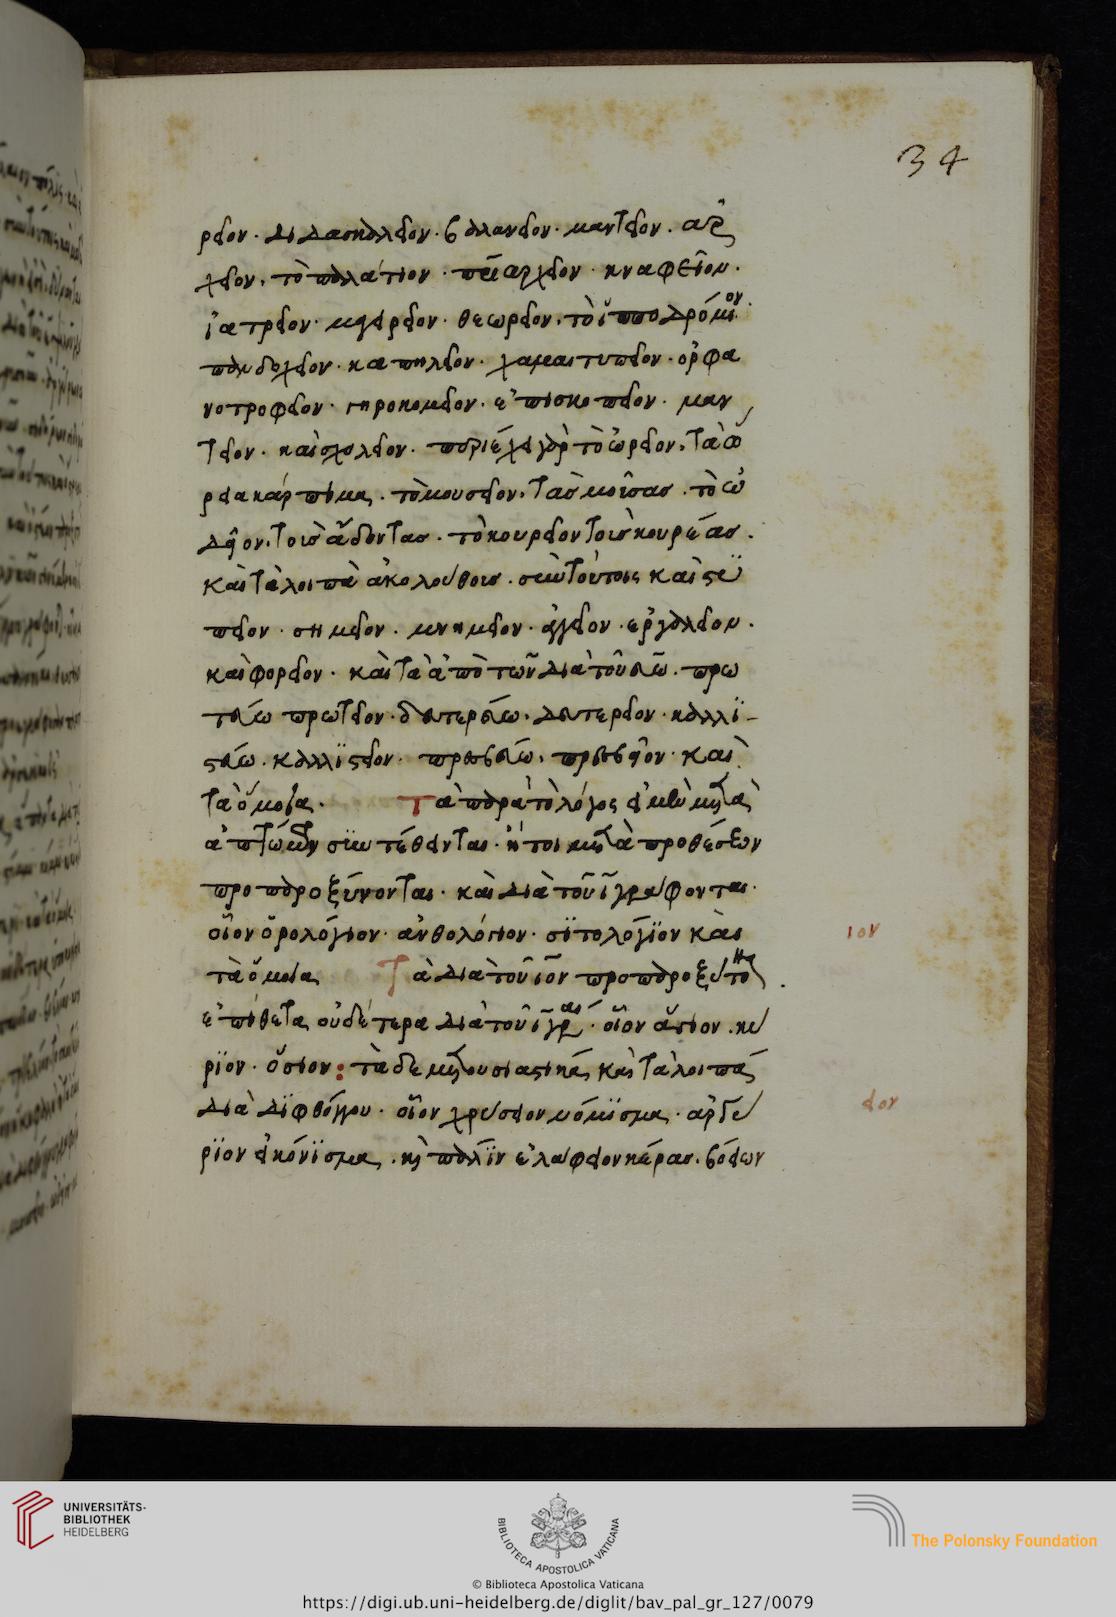 34
ρεῖον· διδασκαλεῖον· βαλανεῖον· μαντεῖον· ἀρ
χεῖον· τὸ παλάτιον· κναφεῖον·
ἰατρεῖον· μαγειρεῖον· θεωρεῖον· τὸ ἱπποδρόμιον·
πανδοχεῖον· καπηλεῖον· χαμαιτυπεῖον· ὀρφα
νοτροφεῖον· γηροκομεῖον· ἐπισκοπεῖον· μαν
τεῖον· καὶ σχολεῖον· περιέχει γὰρ τὸ ὡρεῖον, τὰ ὥ
ρεια καρπόν μας· τὸ μουσεῖον, τὰς μούσας· τὸ ὠ
δεῖον, τοὺς ἄδοντας· τὸ κουρεῖον τοὺς κουρέας·
καὶ τὰ λοιπὰ ἀκολούθως· σὺν τούτοις καὶ
πεῖον· σημεῖον· μνημεῖον· ἀγγεῖον· ἐργαλεῖον·
καὶ φορεῖον· καὶ τὰ ἀπὸ τῶν διὰ τοῦ εύω· πρω
τεύω πρωτεῖον· δευτερεύω, δευτερεῖον· καλλϊ-
στεύω· καλλϊστεῖον· πρεσβεύω, πρεσβεῖον· καὶ
τὰ ὅμοια· Τὰ παρὰ τὸ λόγος εἰ μὲν μετὰ
συντέθεινται· ἤτοι μετὰ προθέσεων
προπαροξύνονται· καὶ διὰ τοῦ ῖ γράφονται·
οἷον ὁρολόγιον· ἀνθολόγιον· σϊτολόγϊον καὶ
ιον
τὰ ὅμοια Τὰ διὰ τοῦ ιον προπαροξύτονα
ἐπίθετα οὐδέτερα διὰ τοῦ ῖ γράφεται· οἷον ἅγιον· κύ
ρϊον· ὅσιον: τὰ δὲ μετουσιαστικὰ καὶ τὰ λοιπὰ
διὰ δϊφθόγγου· οἷον χρύσειον νόμϊσμα· ἀργύ
ειον
ρϊον εἰκόνϊσμα· καὶ πάλϊν ἐλάφειον κέρας· βόειον
UNIVERSITÄTS-
BIBLIOTHEK
HEIDELBERG
BIBLIOTECA APOSTOLICA VATICANA
The Polonsky Foundation
© Biblioteca Apostolica Vaticana
https://digi.ub.uni-heidelberg.de/diglit/bav_pal_gr_127/0079